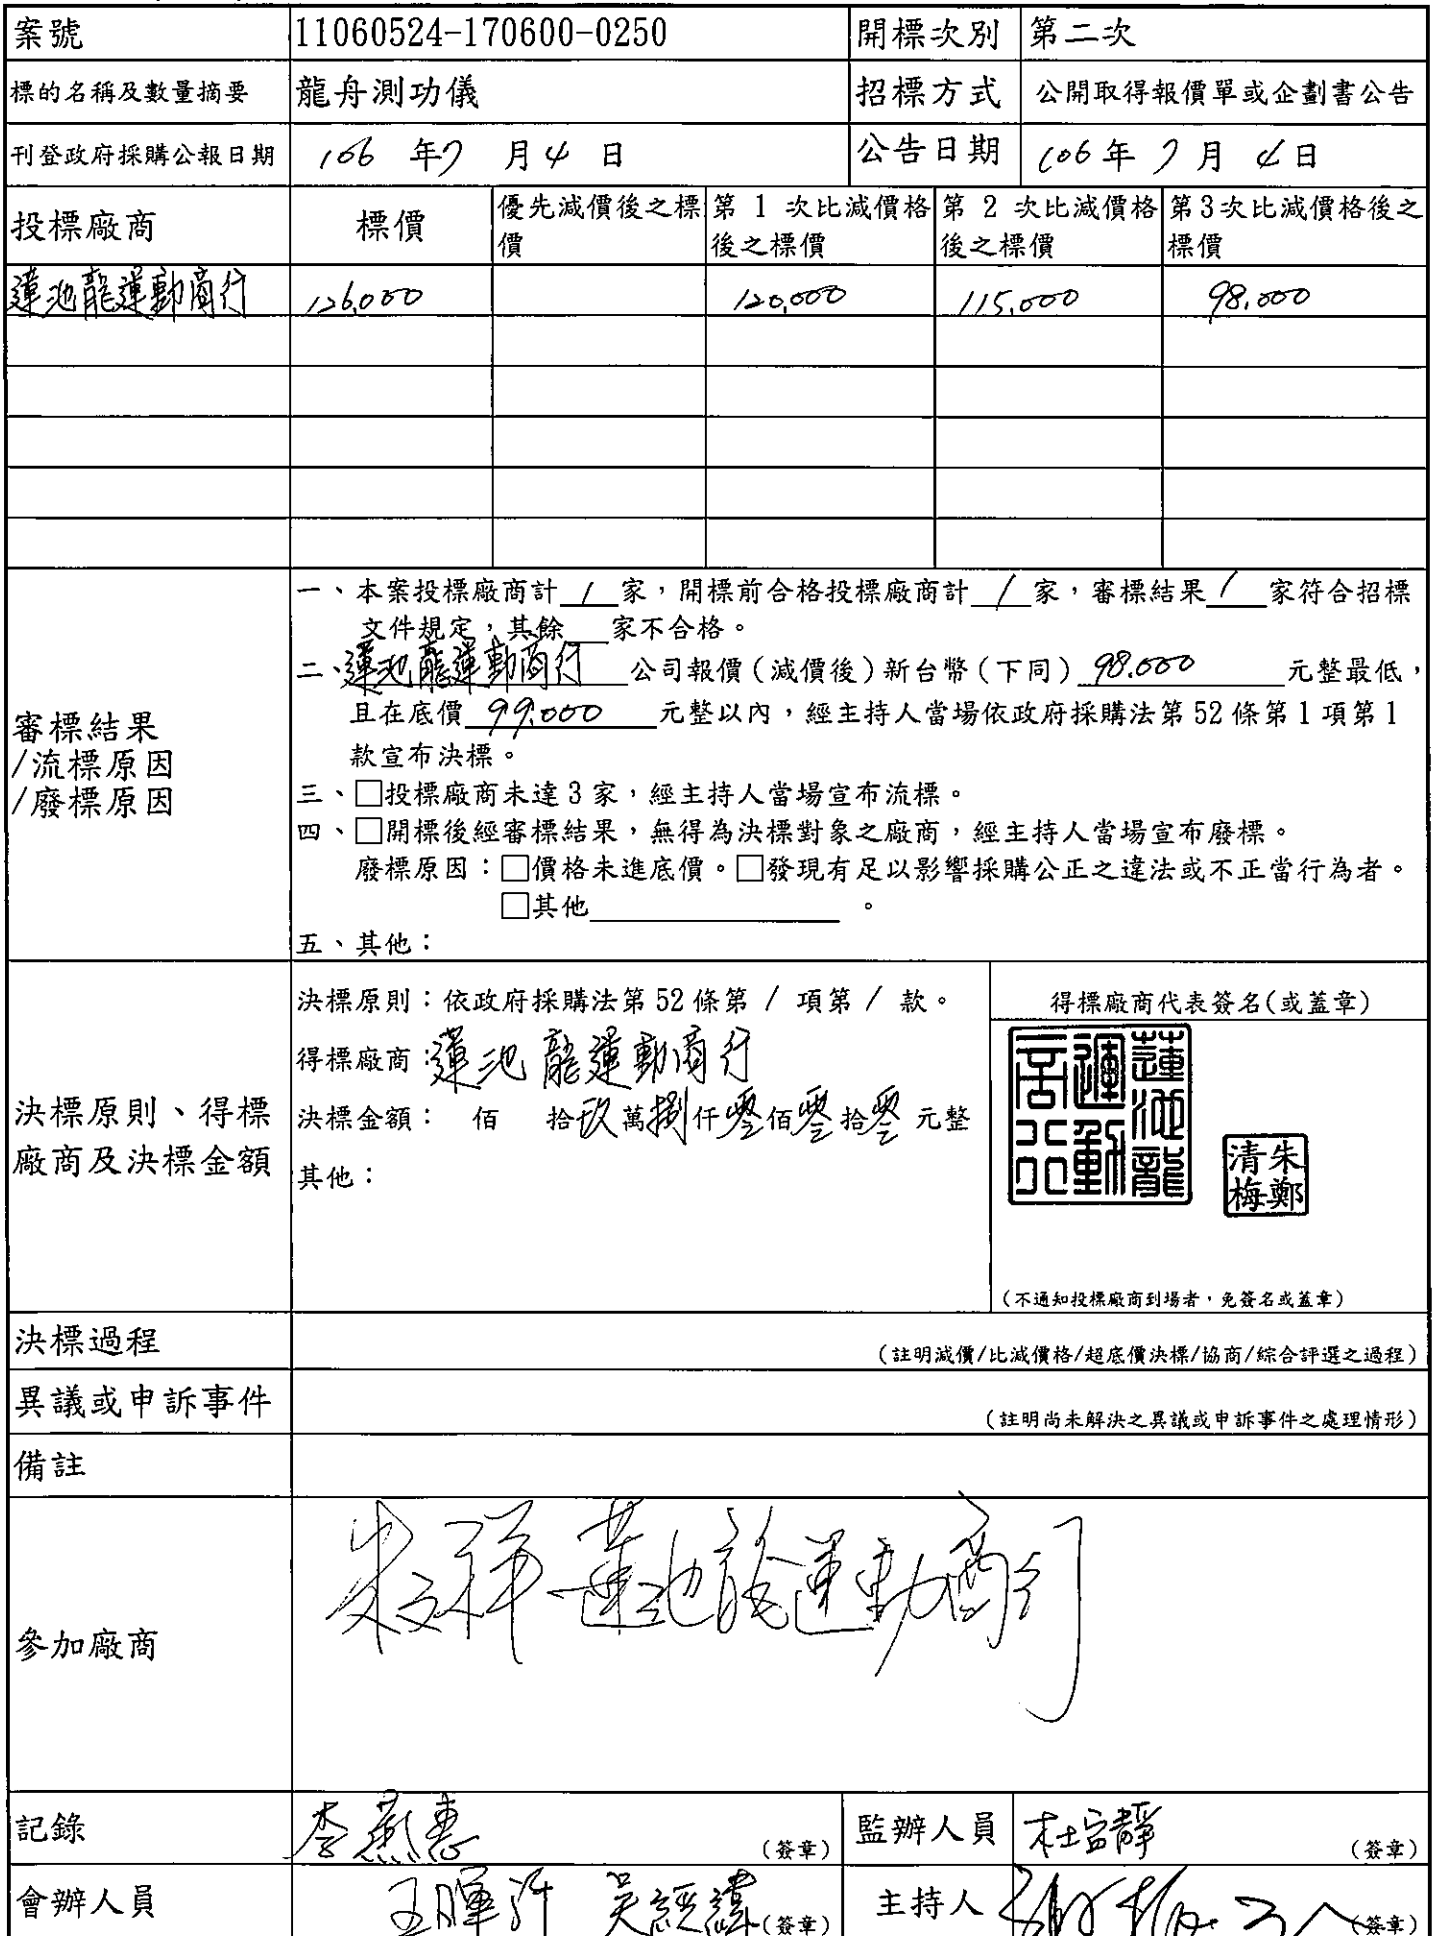 案號 11060524-170600-0250 開標次別 第二次
標的名稱及數量摘要 龍舟測功儀 招標方式 公開取得報價單或企劃書公告
刊登政府採購公報日期 106 年 7 月 4 日 公告日期 106 年 7 月 4 日
投標廠商 標價 優先減價後之標價 第 1 次比減價格後之標價 第 2 次比減價格後之標價 第3次比減價格後之標價
蓮池龍運動商行 126,000 120,000 115,000 98,000
審標結果
/流標原因
/廢標原因
一、本案投標廠商計 1 家，開標前合格投標廠商計 1 家，審標結果 1 家符合招標
文件規定，其餘 家不合格。
二、蓮池龍運動商行 公司報價(減價後)新台幣(下同) 98,000 元整最低，
且在底價 99,000 元整以內，經主持人當場依政府採購法第 52 條第 1 項第 1
款宣布決標。
三、□投標廠商未達 3 家，經主持人當場宣布流標。
四、□開標後經審標結果，無得為決標對象之廠商，經主持人當場宣布廢標。
廢標原因：□價格未進底價。□發現有足以影響採購公正之違法或不正當行為者。
□其他 。
五、其他：
決標原則、得標
廠商及決標金額
決標原則：依政府採購法第 52 條第 1 項第 1 款。
得標廠商：蓮池龍運動商行
決標金額： 佰 拾玖萬捌仟零佰零拾零元整
其他：
得標廠商代表簽名(或蓋章)
蓮池龍
運動
商行
朱鄭
清梅
(不通知投標廠商到場者，免簽名或蓋章)
決標過程 (註明減價/比減價格/超底價決標/協商/綜合評選之過程)
異議或申訴事件 (註明尚未解決之異議或申訴事件之處理情形)
備註
參加廠商 朱文祥 蓮池龍運動商行
記錄 李燕惠 (簽章) 監辦人員 (簽章)
會辦人員 吳經緯 (簽章) 主持人 (簽章)